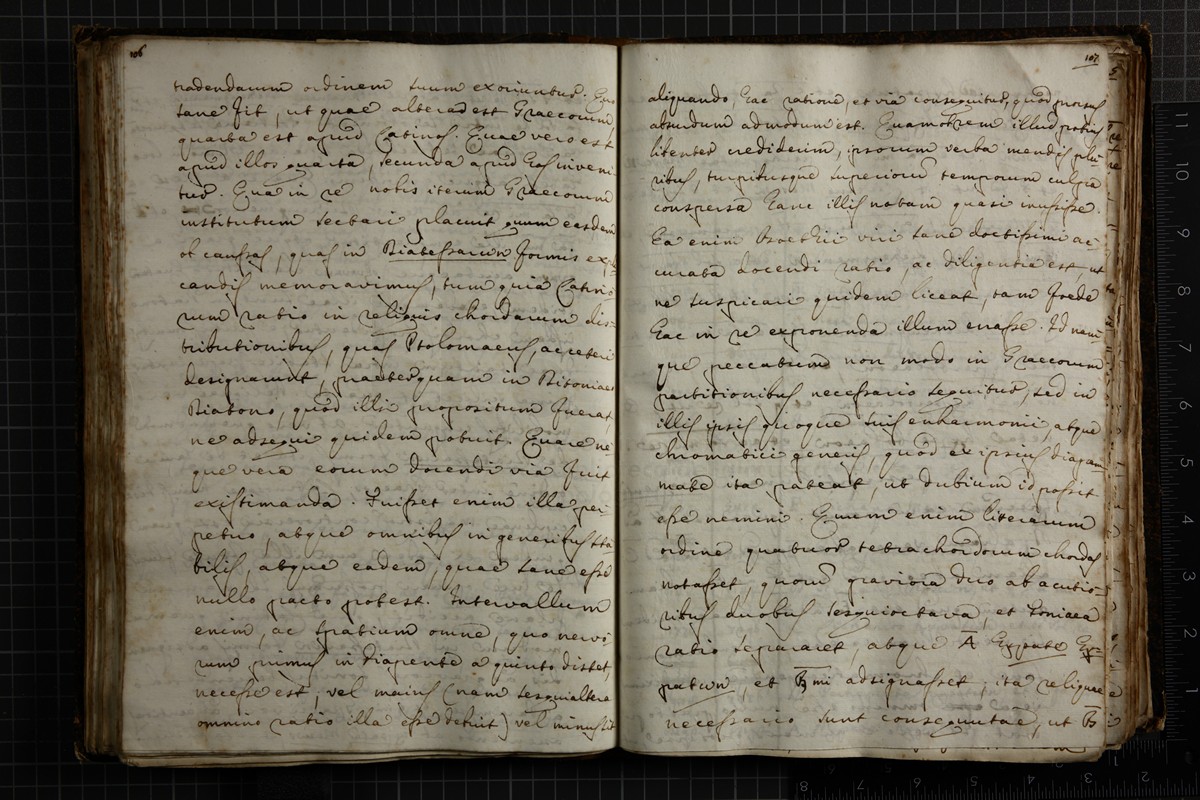 106
tradendarum ordinem suum exoriuntur. Quo
sane fit, ut quae altera est Graecorum
quarta est apud Latinos. Quae vero est
apud illos quarta, secunda apud hos inveni-
tur. Qua in re nobis iterum Graecorum
institutum sectari placuit quum easdem
ob caussas, quas in Diatessarωn formis expli-
candis memoravimus, tum quia Latino-
rum ratio in reliquis chordarum dis-
tributionibus, quas Ptolomaeus, ac ceteri
designarunt, praeterquam in Ditoniaeo
Diatono, quod illis propositum fuerat,
ne adsequi quidem potuit. Quare ne-
que vera eorum docendi via fuit
existimanda. Fuisset enim illa per-
petuo, atque omnibus in generibus sta-
bilis, atque eadem, quae sane esse
nullo pacto potest. Intervallum
enim, ac spatium omne, quo nervo-
rum primus in diapente a quinto distet,
necesse est, vel maius (nam sesquialtera
omnino ratio illa esse debuit) vel minus sit
107
aliquando, hac ratione, et via consequitur, quod prorsus
absurdum admodum est. Quamobrem illud potius
libenter crediderim, ipsorum verba mendis plu-
ribus, turpibusque superiorum temporum culpa
conspersa hanc illis notam quasi inussisse.
Ea enim Boethii viri sane doctissimi ac-
curata docendi ratio, ac diligentia est, ut
ne suspicari quidem liceat, tam foede
hac in re exponenda illum errasse. Id nam-
que peccatum non modo in Graecorum
partitionibus necessario sequitur, sed in
illis ipsis quoque suis enharmonii, atque
chromatici generis, quod ex ipsius diagram-
mate ita pateat, ut dubium id possit
esse nemini. Quum enim literarum
ordine quatuor tetrachordorum chordas
notasset, quorum graviora duo ab acutio-
ribus duobus sesquioctava, et toniaea
ratio separaret, atque A Hypate Hy-
patωn, et B mi adsignasset, ita reliquae
necessario sunt consequutae, ut B